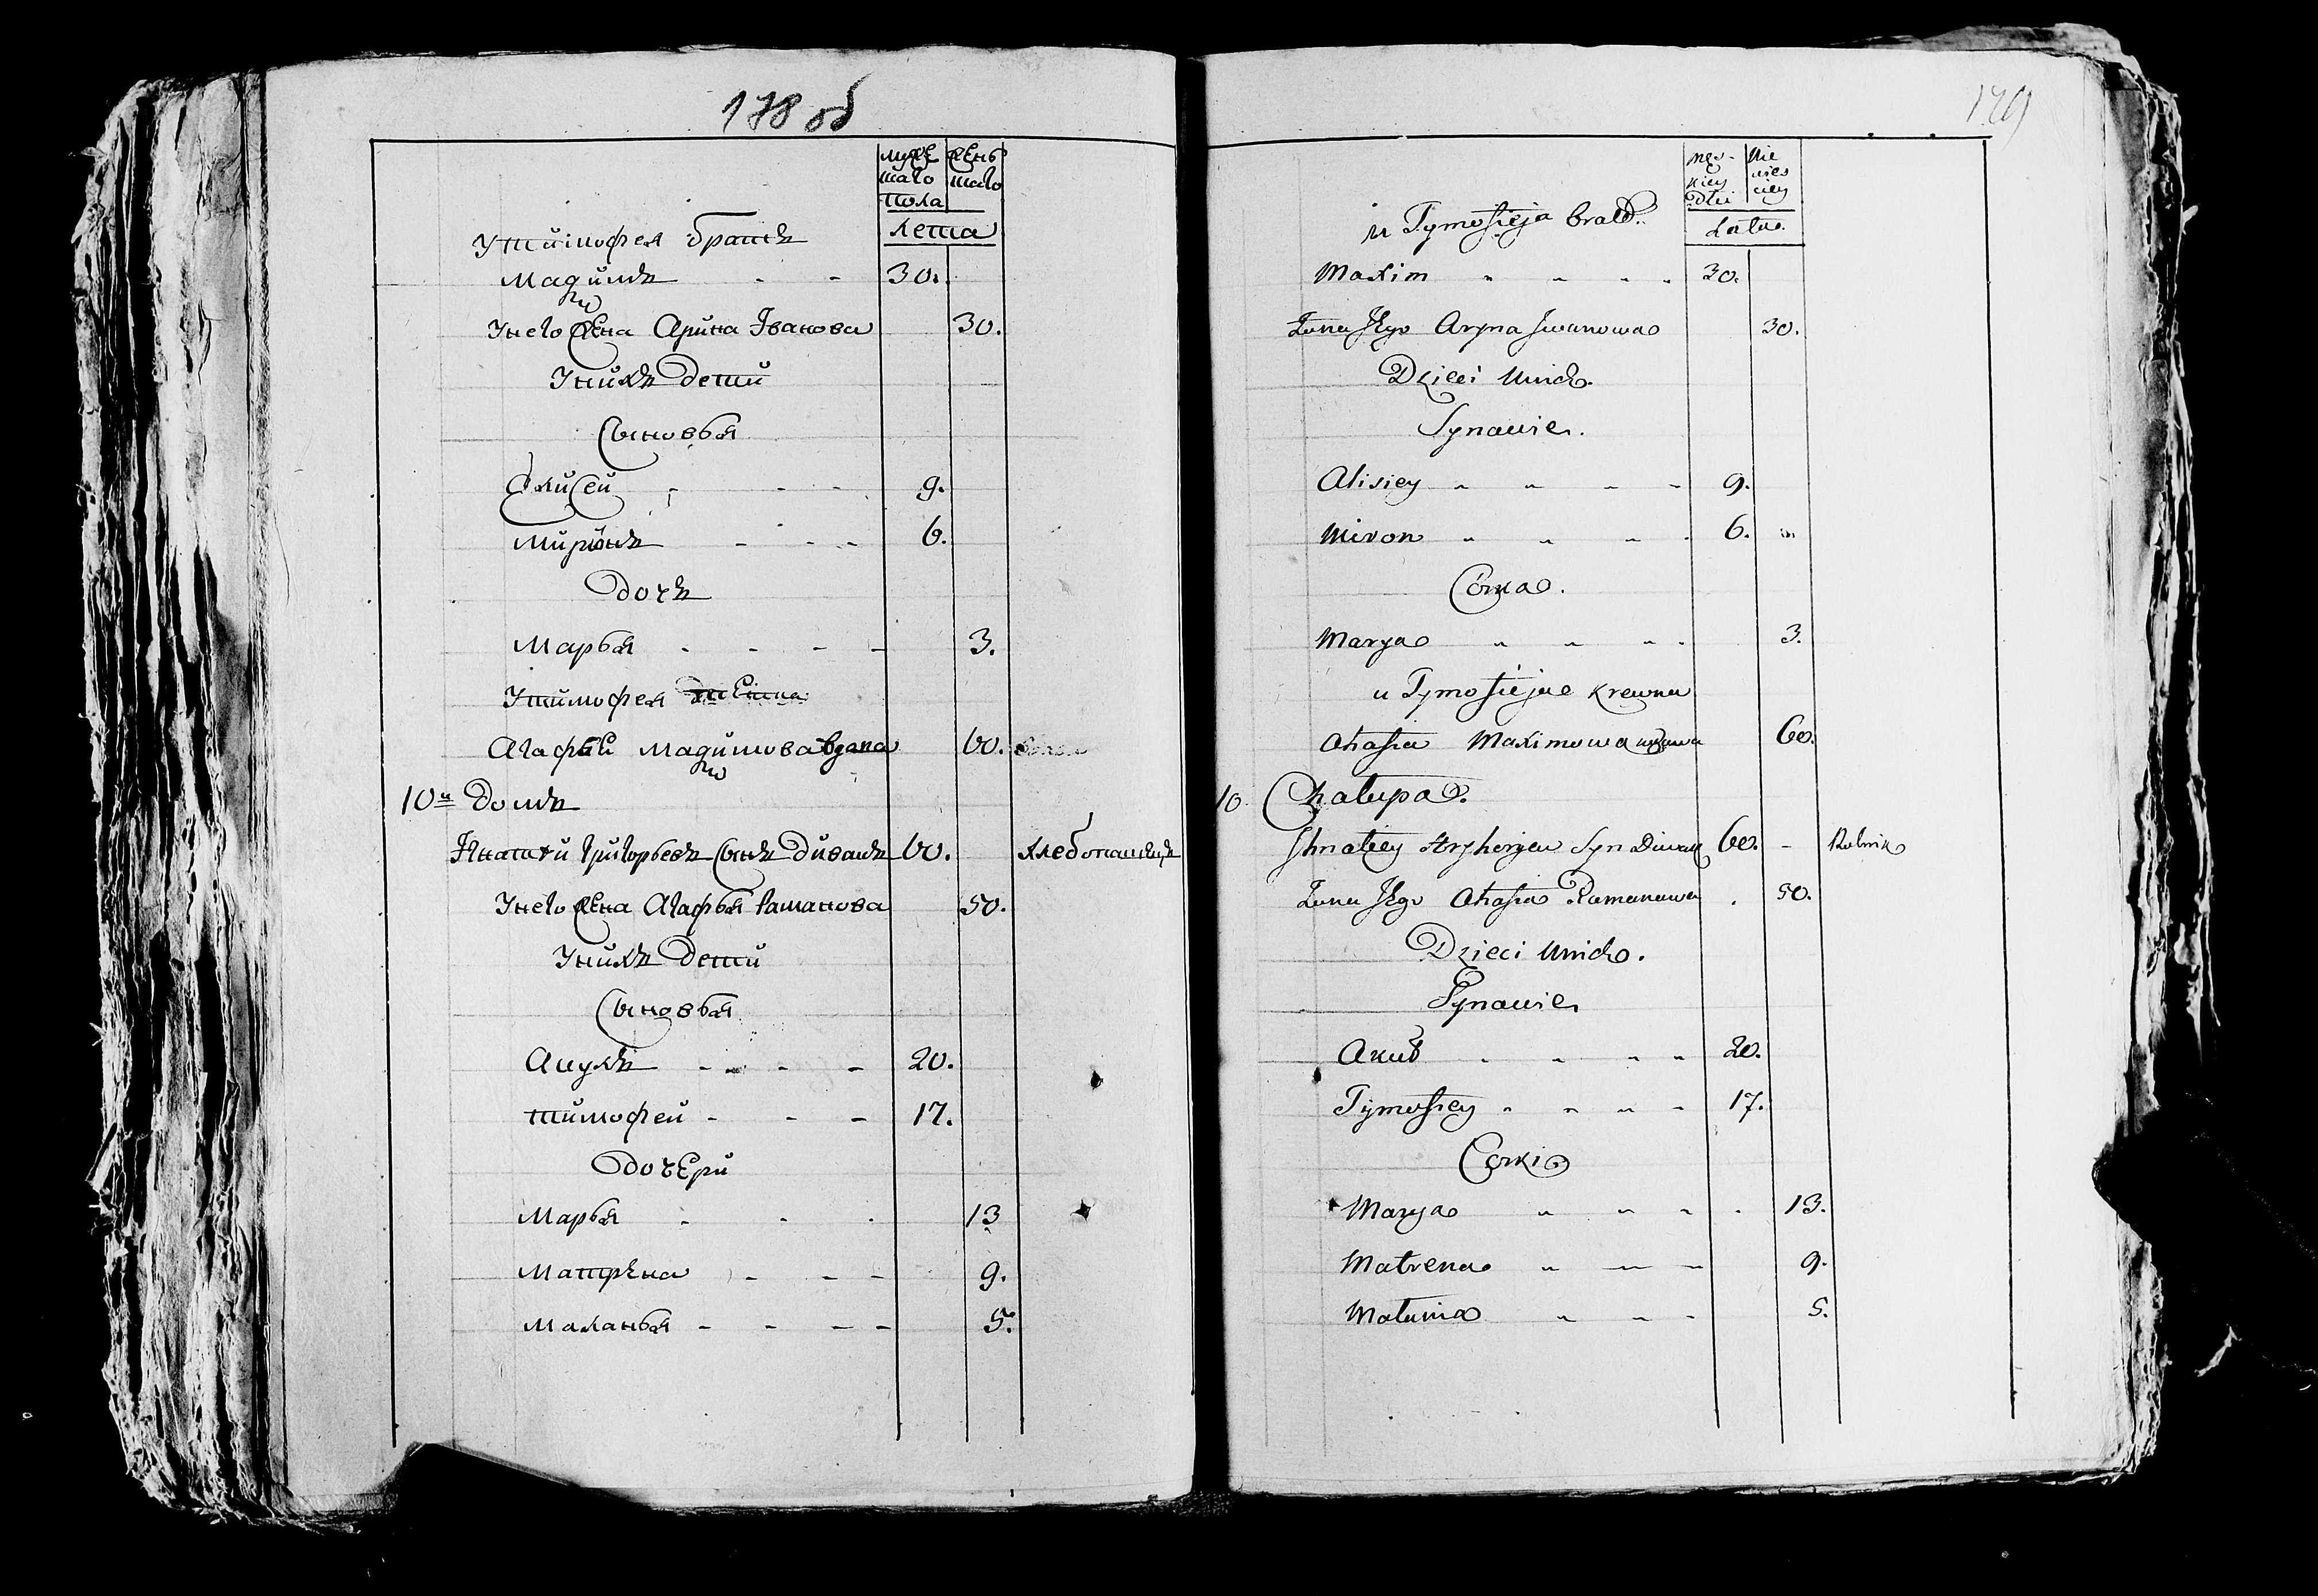 178 об
муже женъ
шаго шаго
пола
лета
У тимофея братъ
Мадимъ 30.
У него жена Арина Iванова 30.
У нихъ Дети
Сыновья
Елисеи 9.
Миронъ 6.
Дочъ
Марья 3.
У тимофея
Агафъи Мадимова вдава 60.
10й Домъ
Игнатеи Григорьевъ Сынъ Дивакъ 60. хлебопашецъ
У него жена Агафья Раманова 50.
У нихъ Дети
Сыновья
Ацукъ 20.
тимофеи 17.
Дочери
Марья 13
Матрена 9.
Маланья 5.
179
męs- nie
kiey wies
Płci ciey
Lata
u Tymofieja brald.
Maxim 30.
Zona Jego Aryna Iwanowa 30.
Dzieci Unich.
Synawie.
Alisiey 9.
Miron 6.
Córka.
Marya 3.
u Tymofieja Krewna
Ahafia Maximowa wdawa 60.
10. Chałupa.
Ihnatiey Hryhorjew Syn Diwak 60. Rolnik
Zona Jego Ahafia Ramanawa 50.
Dzieci Unich.
Synawie
Akub 20.
Tymofiey 17.
Corki
Marya 13.
Matrena 9.
Małania 5.